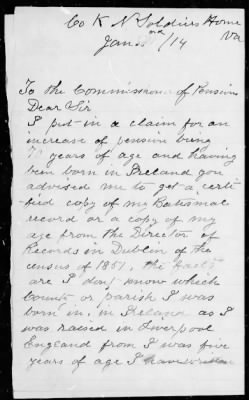 Co K N Soldiers Home
Va
Jan 1st/14
To the Commissioner of Pensions
Dear Sir
I put in a claim for an
increase of pension being
years of age and having
been born in Ireland you
advised me to get a certi
fied copy of my Batismal
record or a copy of my
age from the Director of
Records in Dublin of the
census of 1851, the facts
are I don't know which
County or parish I was
born in in Ireland as I
was raised in Liverpool
England from I was five
years of age I have written